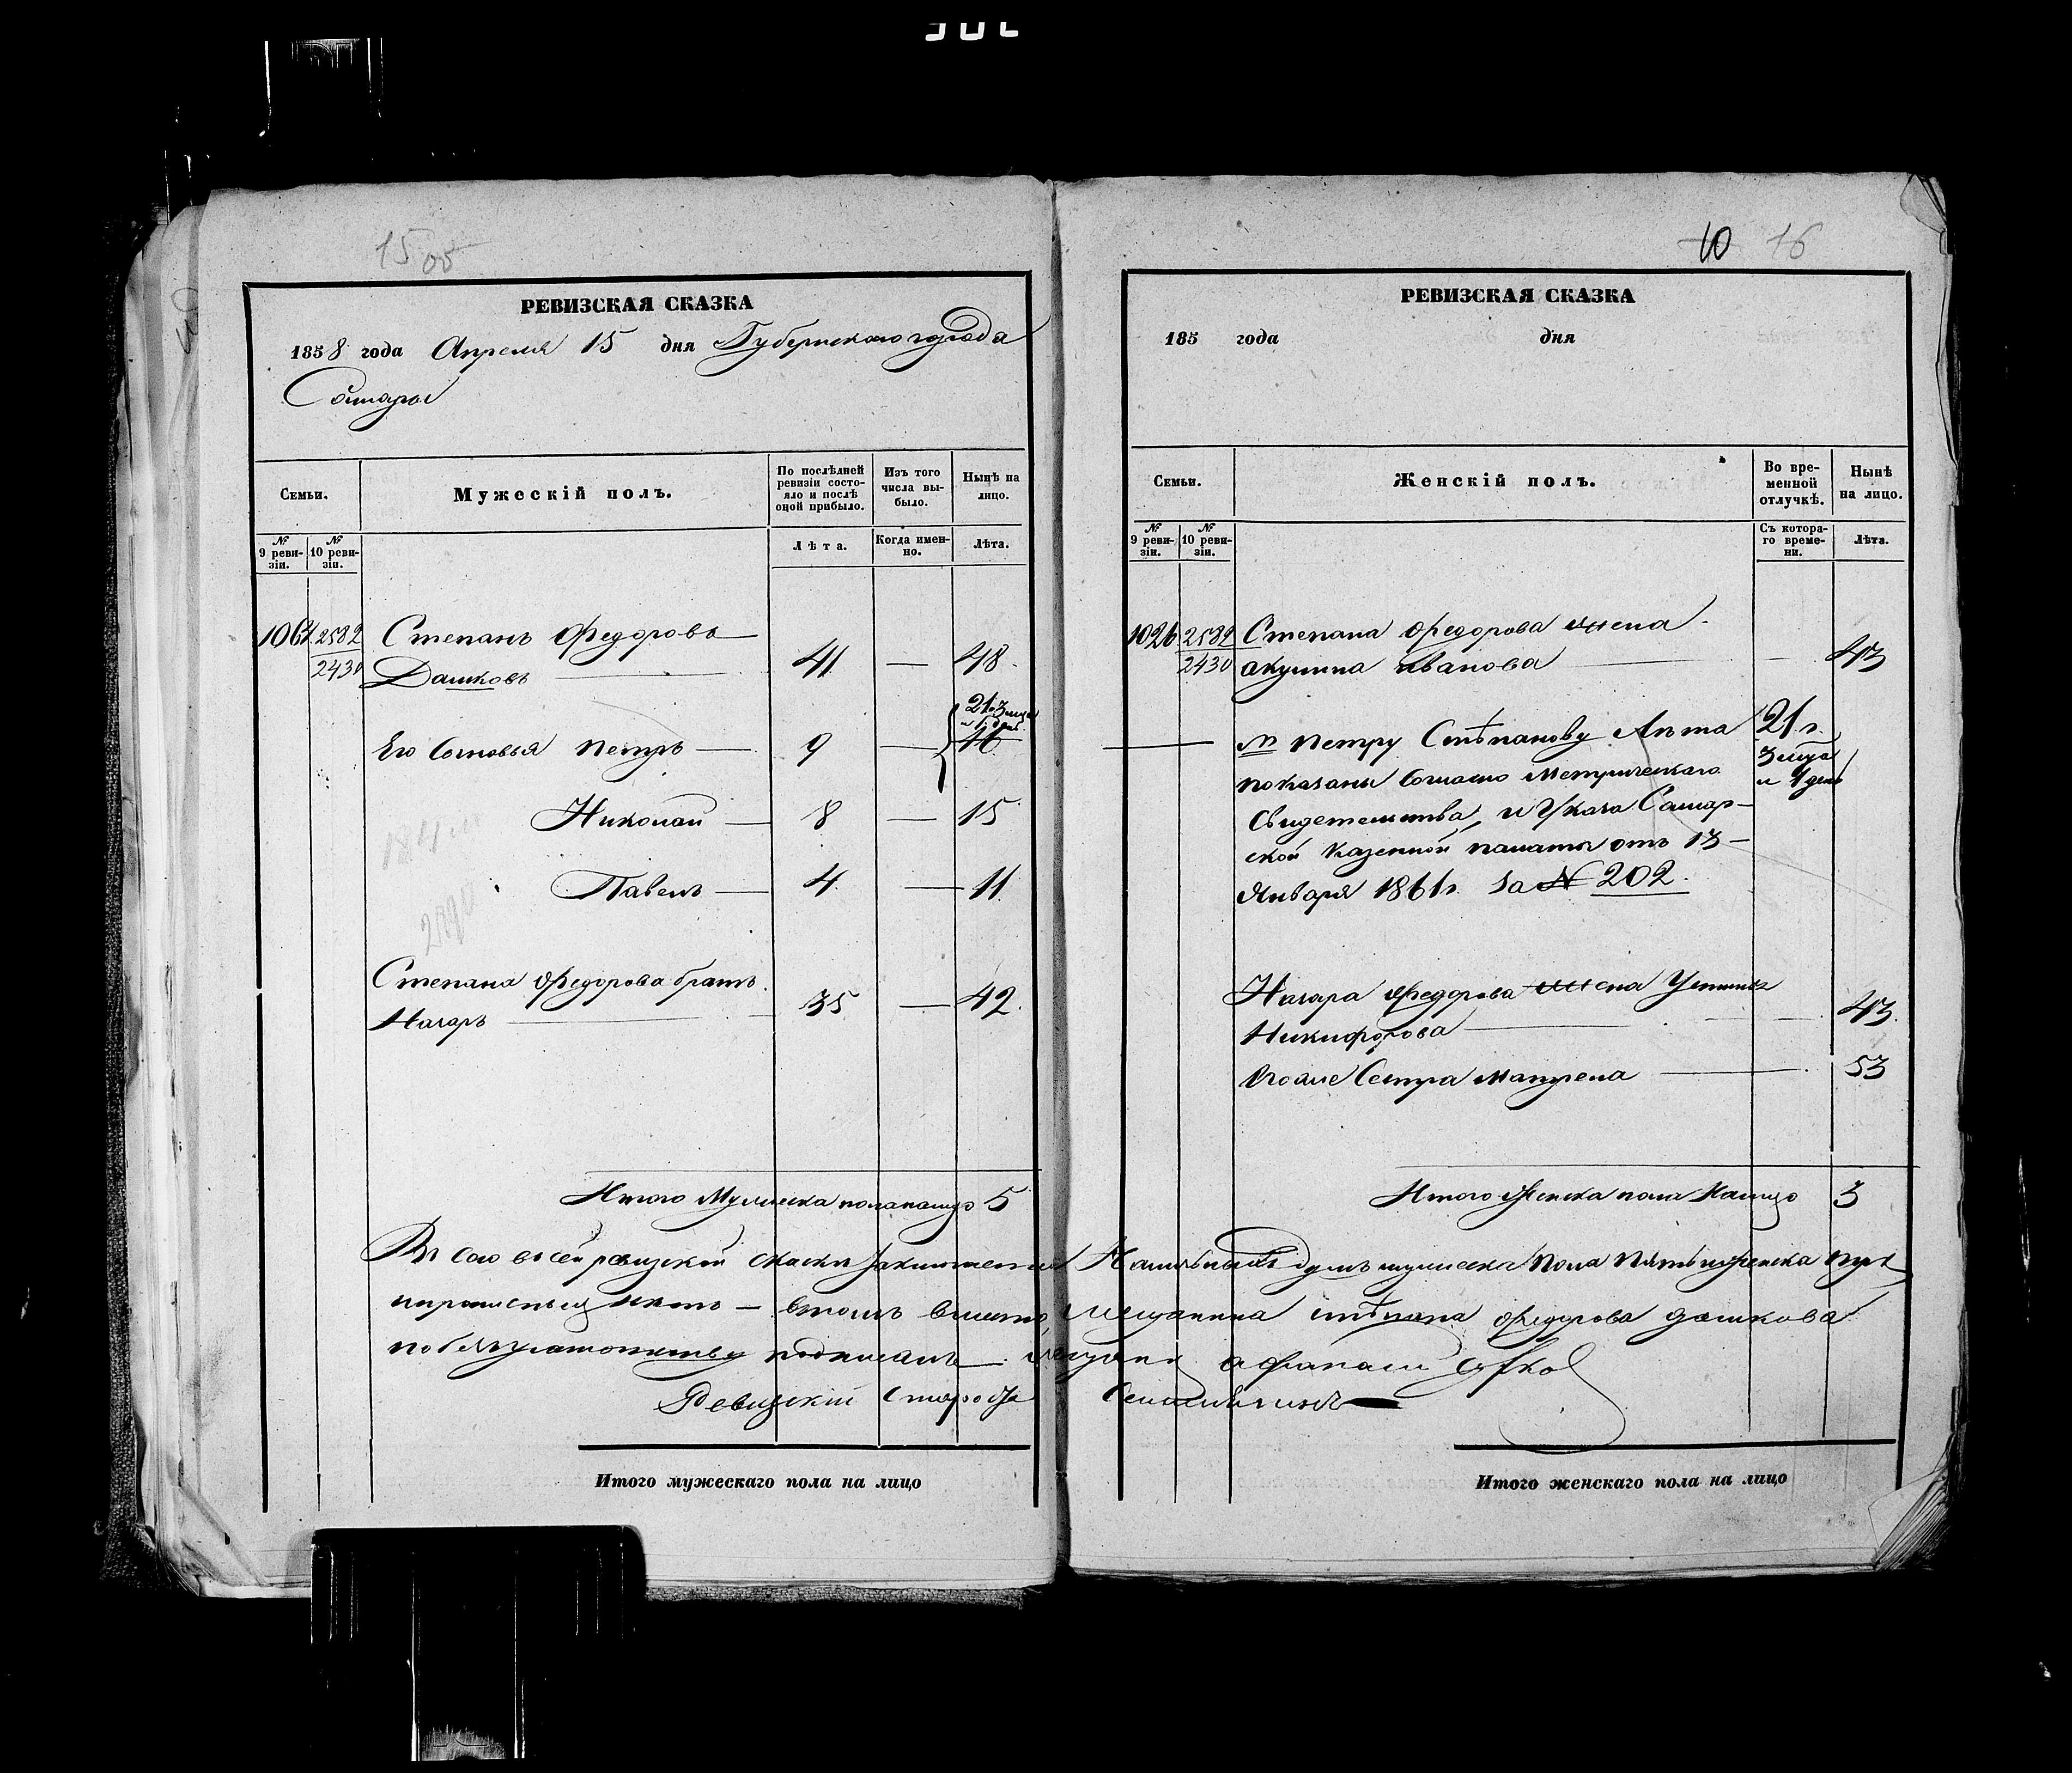 15
10 16
РЕВИЗСКАЯ СКАЗКА
1858 года Апреля 15 дня Губернскаго города
Самары
Семьи.
Мужескій полъ.
По послѣдней ревизіи состояло и послѣ оной прибыло.
Изъ того числа выбыло.
Нынѣ на лицо.
№ 9 ревизіи.
№ 10 ревизіи.
Лѣта.
Когда именно.
Лѣта.
1064 2582 Степанъ Федоровъ
2430 Дашковъ 41 — 48
21 г. 3 мца
Его Сыновья Петръ — 9 — 16
Николай — 8 — 15
Павелъ — 4 — 11
Степана Федорова братъ
Назаръ 35 — 42
Итого Мужеска пола налицо 5
РЕВИЗСКАЯ СКАЗКА
185 года дня
Семьи.
Женскій полъ.
Во временной отлучкѣ.
Нынѣ на лицо.
№ 9 ревизіи.
№ 10 ревизіи.
Съ котораго времени.
Лѣта.
1026 2582 Степана Федорова жена
2430 акулина иванова — 43
Петру Степанову Лѣта 21 г.
показаны согласно Метрическаго 3 мца
Свидетельства, и Указа Самар- и 1 день
ской Казенной палаты отъ 13
Января 1861 г. за № 202.
Назара Федорова жена Устинья
Никифорова — 43
Его же Сестра Матрена — 53
Итого Женска пола Налицо 3
Наличныхъ душъ мужеска Пола Пять женска три
въ томъ вместо мещанина степана федорова дашкова
подписалъ афанасий
Ревизскій Староста
Итого мужескаго пола на лицо
Итого женскаго пола на лицо